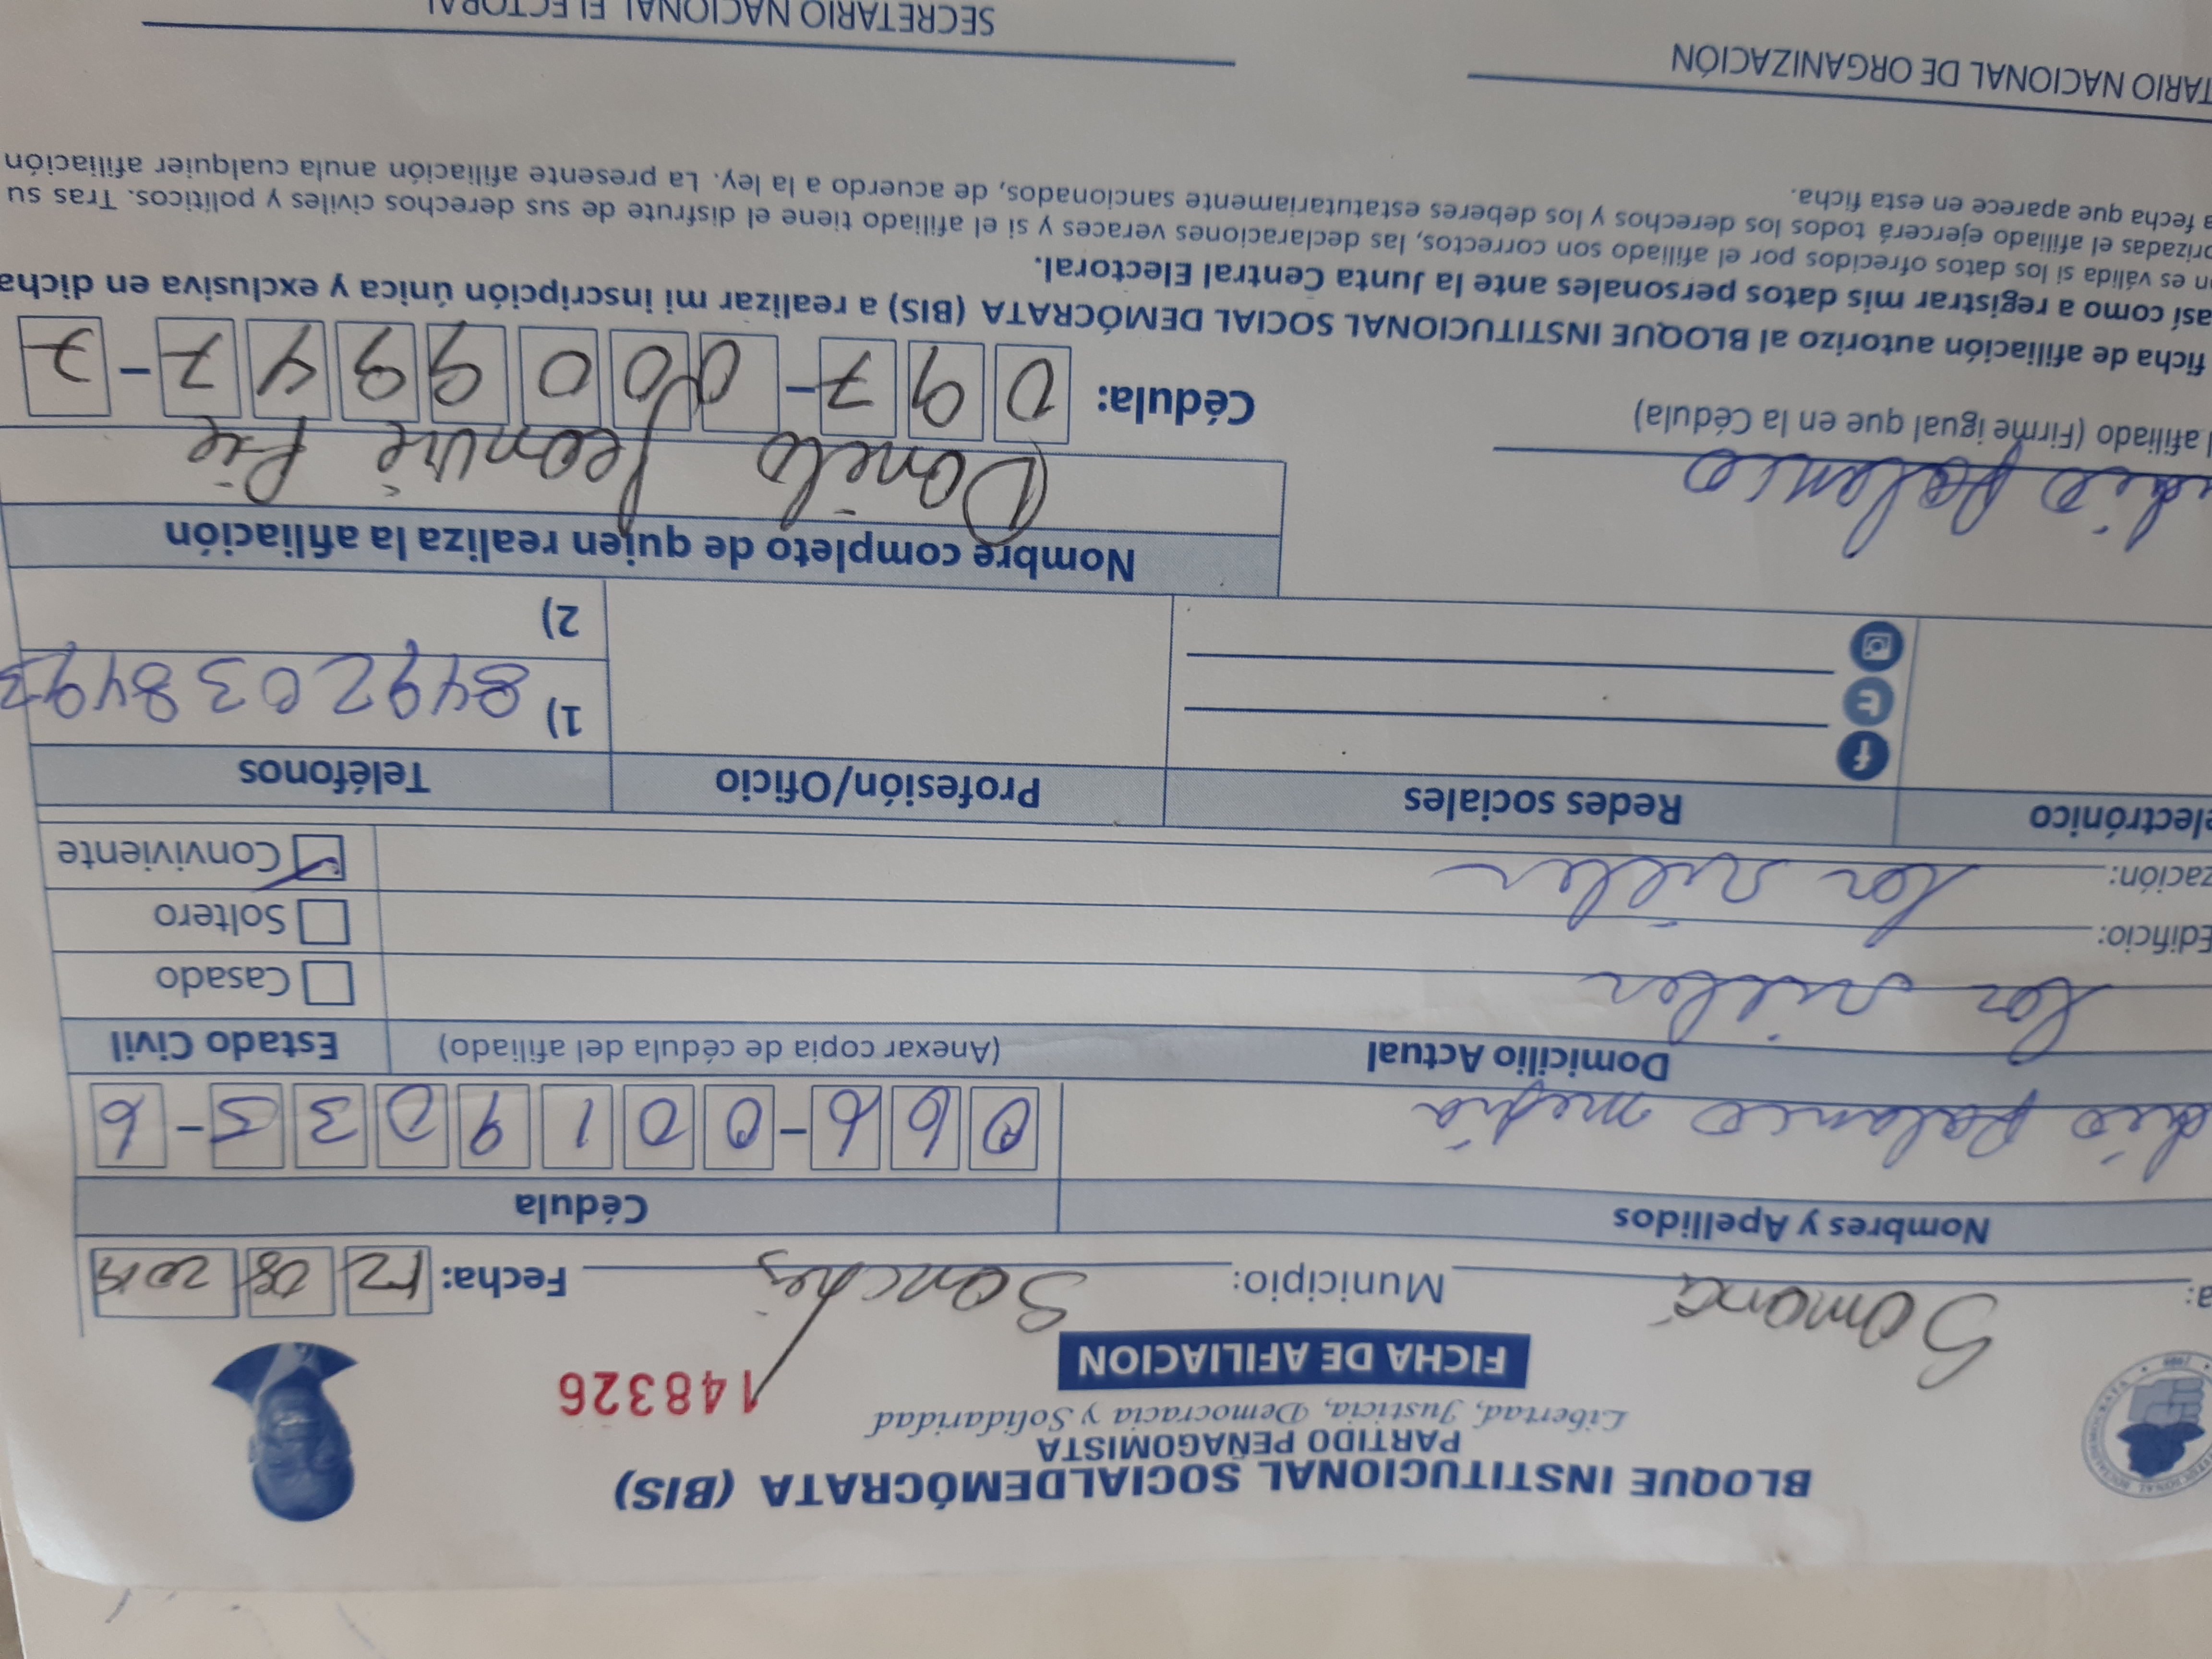 BLOQUE INSTITUCIONAL SOCIALDEMÓCRATA (BIS)
PARTIDO PEÑAGOMISTA
Libertad, Justicia, Democracia y Solidaridad
148326
FICHA DE AFILIACION
a: Samaná Municipio: Sanchez Fecha: 12 08 2019
Nombres y Apellidos Cédula
dio Polanco mejia 066-0019035-6
Domicilio Actual (Anexar copia de cédula del afiliado) Estado Civil
Casado
Edificio: Soltero
zación: Conviviente
lectrónico Redes sociales Profesión/Oficio Teléfonos
1) 8492038493
2)
Nombre completo de quien realiza la afiliación
dio Polanco
l afiliado (Firme igual que en la Cédula)
Cédula: 097-0009947-7
ficha de afiliación autorizo al BLOQUE INSTITUCIONAL SOCIAL DEMÓCRATA (BIS) a realizar mi inscripción única y exclusiva en dicha
así como a registrar mis datos personales ante la Junta Central Electoral.
n es válida si los datos ofrecidos por el afiliado son correctos, las declaraciones veraces y si el afiliado tiene el disfrute de sus derechos civiles y políticos. Tras su
orizadas el afiliado ejercerá todos los derechos y los deberes estatutariamente sancionados, de acuerdo a la ley. La presente afiliación anula cualquier afiliación
a fecha que aparece en esta ficha.
TARIO NACIONAL DE ORGANIZACIÓN
SECRETARIO NACIONAL ELECTORAL